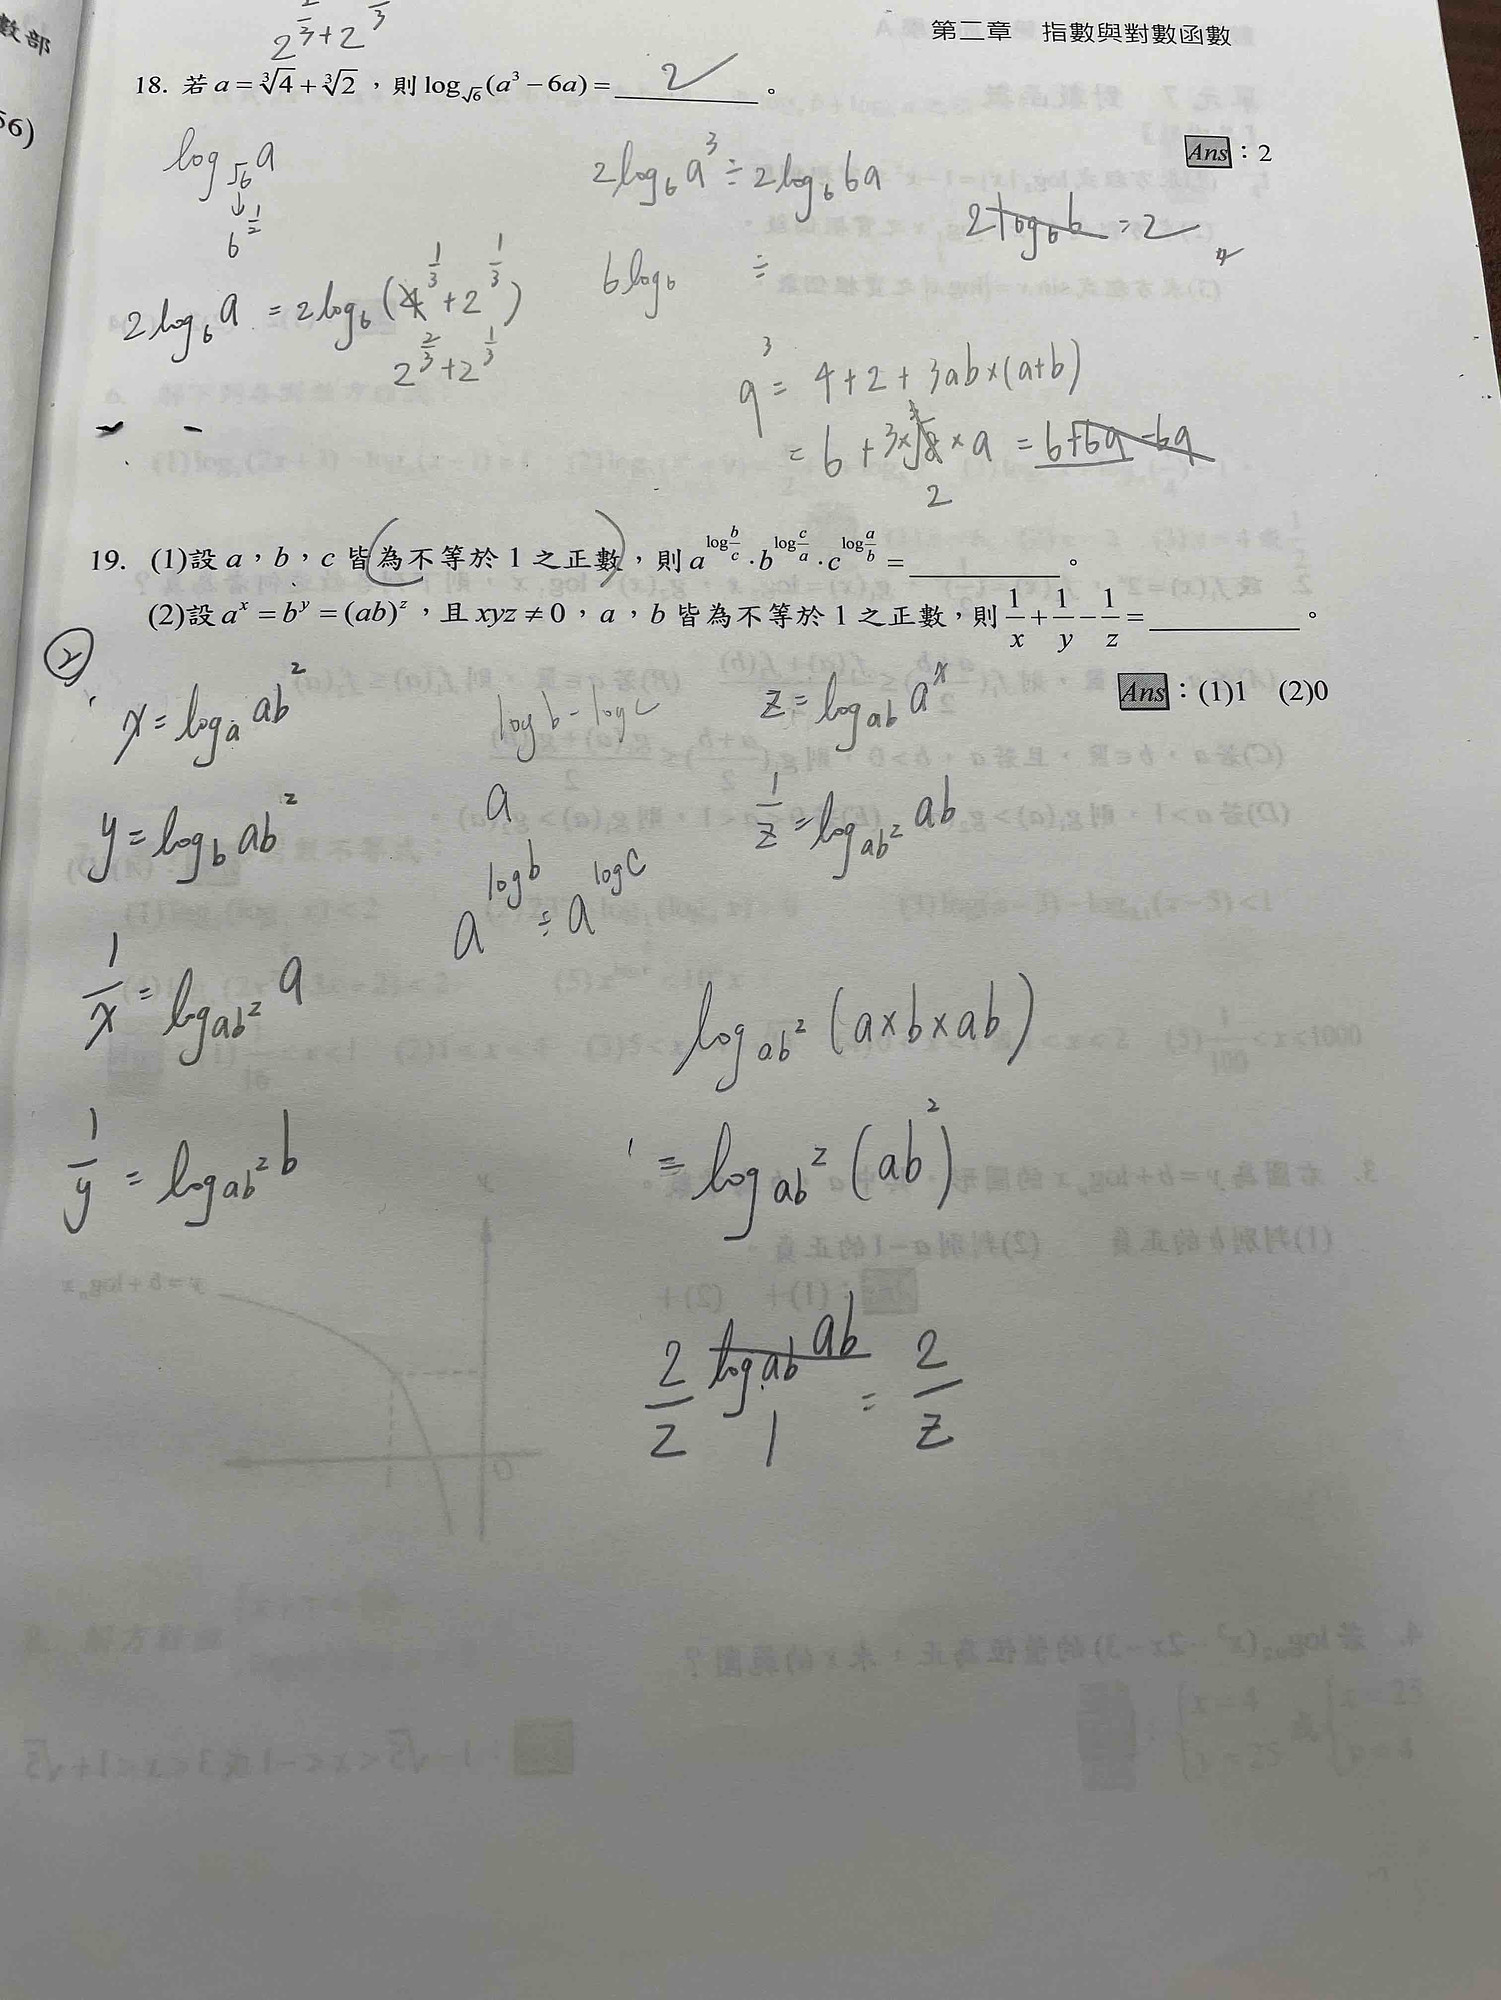 數部
56)
第二章 指數與對數函數
2^{2/3}+2^{1/3}
18. 若 a = ∛4 + ∛2，則 log_{√6}(a³ − 6a) = 2 。
Ans：2
log_{√6} a
↓
6^{1/2}
2log₆a³ ÷ 2log₆6a
2log₆6 = 2
2log₆a = 2log₆(4^{1/3}+2^{1/3})
2^{2/3}+2^{1/3}
6log₆ ÷
a³ = 4+2+3ab×(a+b)
= 6+3×∛8×a = 6+6a−6a
2
19. (1)設 a，b，c 皆為不等於 1 之正數，則 a^{log b/c}·b^{log c/a}·c^{log a/b} = ________ 。
(2)設 a^x = b^y = (ab)^z，且 xyz ≠ 0，a，b 皆為不等於 1 之正數，則 1/x + 1/y − 1/z = ________ 。
Ans：(1)1 (2)0
②
x = log_a ab^z
log b − log c
z = log_{ab} a^x
y = log_b ab^z
a
1/z = log_{ab^z} ab
a^{log b} ÷ a^{log c}
1/x = log_{ab^z} a
log_{ab^z}(a×b×ab)
1/y = log_{ab^z} b
= log_{ab^z}(ab)²
2/z log_{ab} ab = 2/z
1